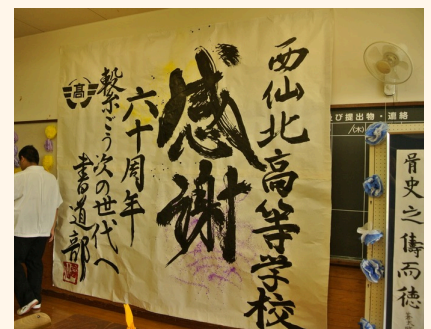 西仙北高等学校
感謝
六十周年
繋ごう次の世代へ
書道部
高
び提出物・連絡
(木)
骨史之儔而徳